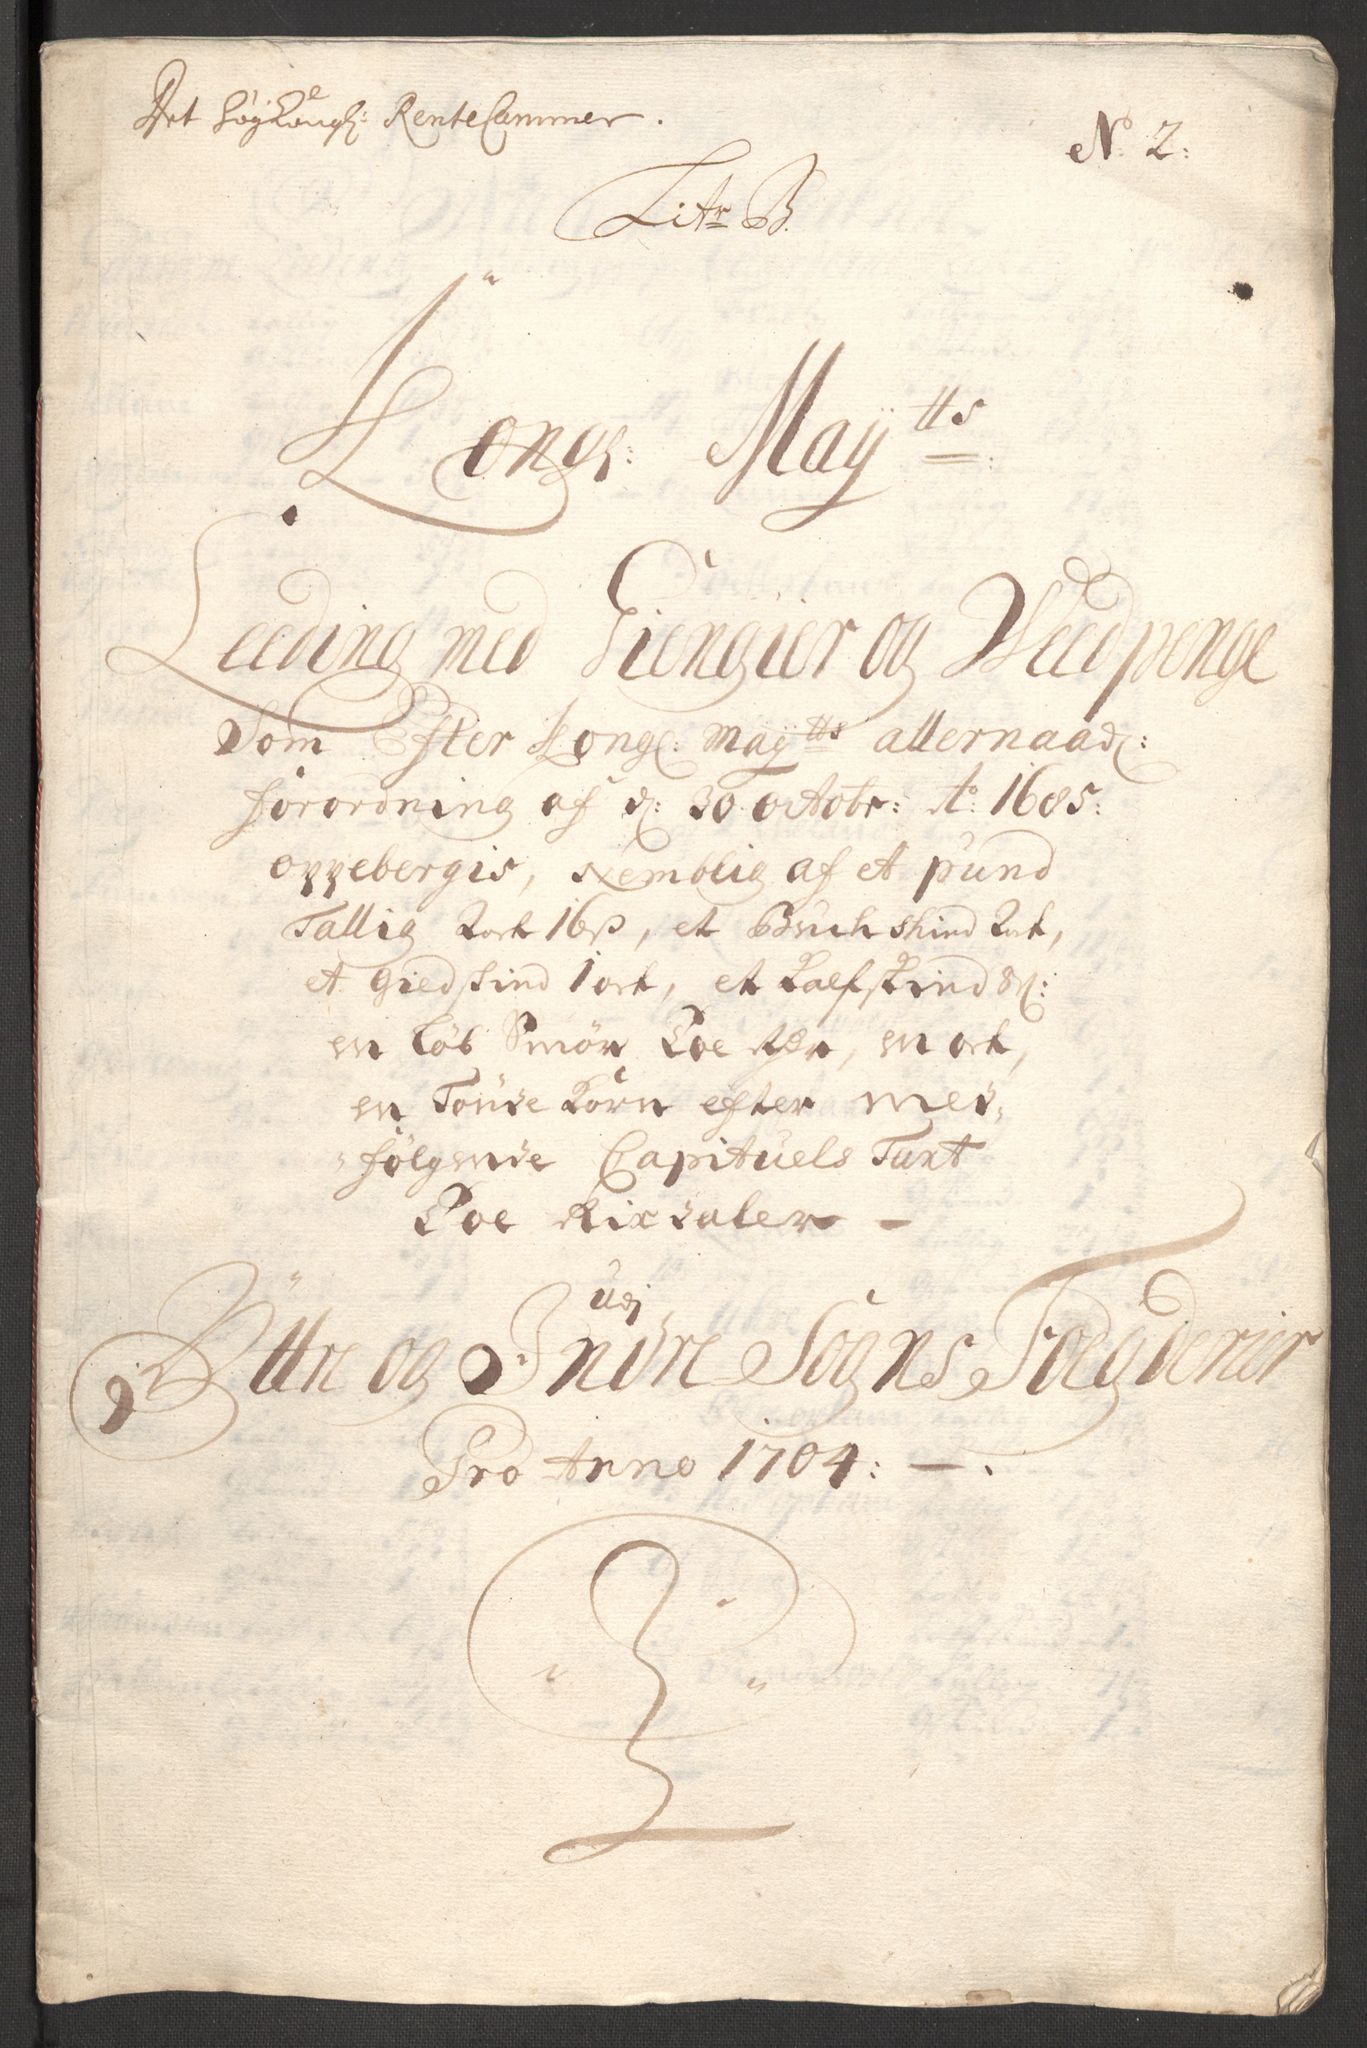 Det høyKongl: RenteCammer.
No 2:
Litr B.
Kongl: Maytts
Leeding med Giengier og Weedpenge
Som Efter Kongl: Maytts allernaadl:
forordning af d: 30 Octobr: Ao: 1685:
oppebergis, Nemblig af et pund
Tallig 2 ort 16 s, et Buchskind 2 ort,
et giedskind 1 ort, et Kalfskind 8 s:
en Løb Smør Toe Rdr, en ort,
en Tønde Korn efter med-
følgende Capituels Taxt
Toe Rixdaler —
Udj
Ÿttre og Indre Sogns Foegderier
Pro Anno 1704: —.